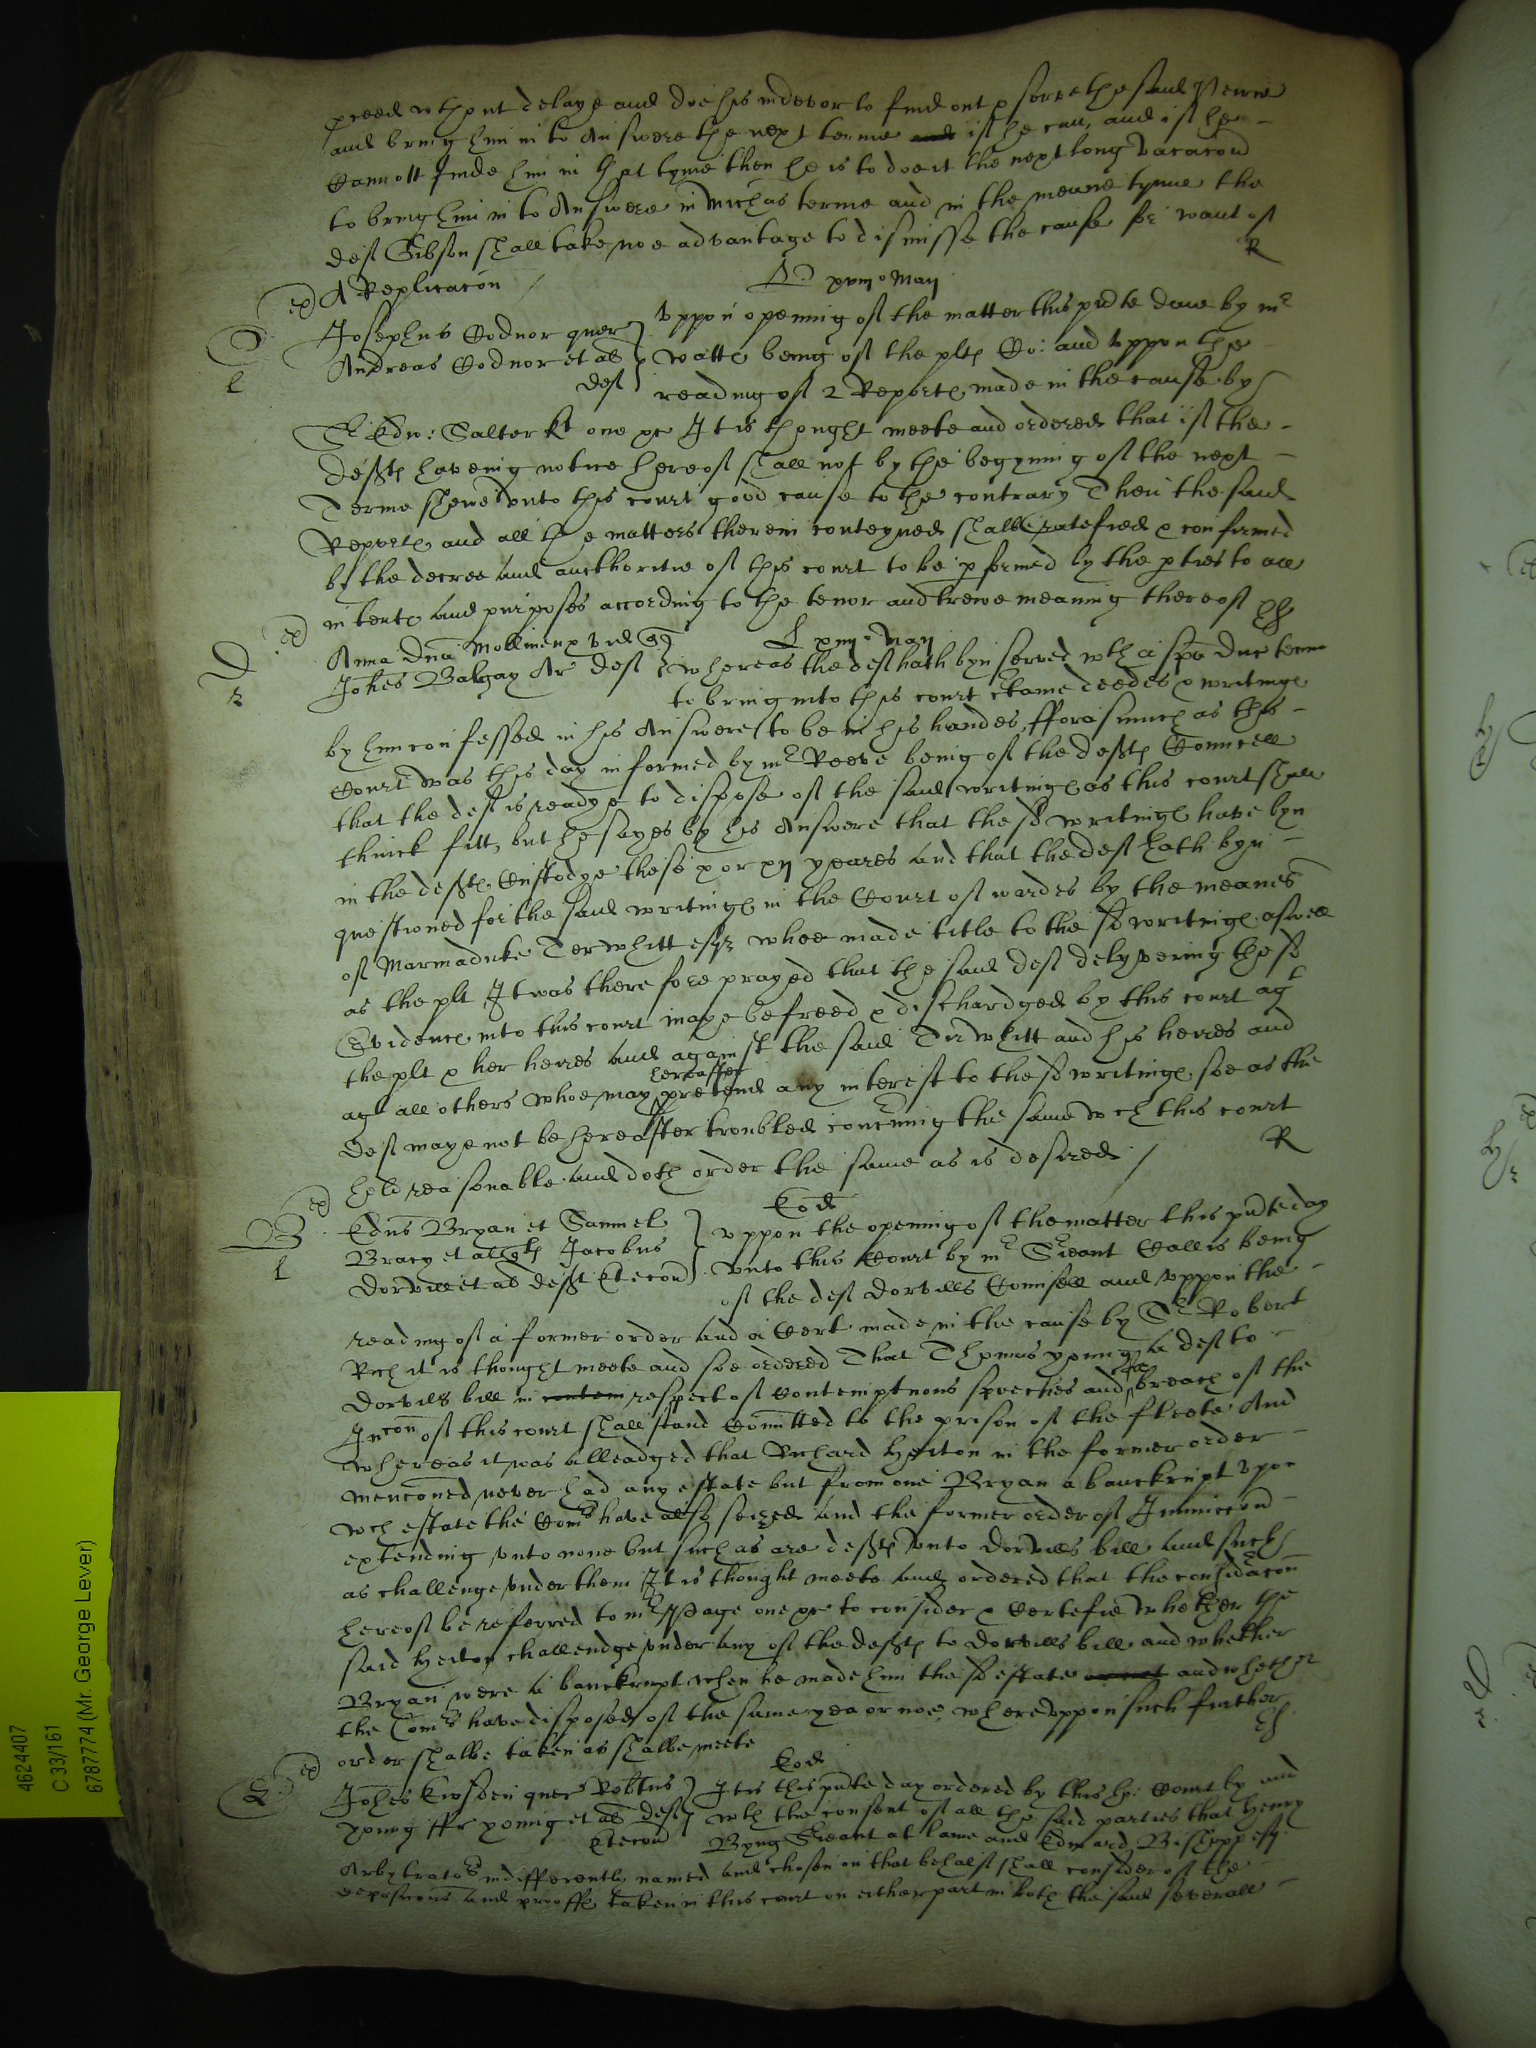 proceed wthout delaye and doe his indevor to find out & serve the said
and bring him in to Answere the next terme and if he can, and if he
Cannott finde him in that tyme then he is to doe it the next long vacacon
to bring him in to Answere in Michas terme and in the meane tyme the
def Gibson shall take noe advantage to dismisse the cause for want of
A Replicacon
R
xviijo Maij
Josephus Codnor quer
Andreas Codnor et al
def
Uppon opening of the matter this pnte daie by mr
Watt being of the plts Co: and uppon the
reading of 2 Reports made in the cause by
Sr Edw: Salter kt one &c It is thought meete and ordered that if the
defts haveing notice hereof shall not by the begynning of the next
Terme shewe unto this court good cause to the contrary Then the said
Reports and all the matters therein conteyned shalbe ratefied & confirmed
by the decree and aucthoritie of this court to be pformed by the pties to all
intents and purposes according to the tenor and trewe meaning thereof
Anna Dna Mollineux vid qz
Johes Balgay Ar def
xviijo Maij
whereas the def hath byn served wth a spa duc tecum
to bring into this court ctaine deedes & writings
by him confessed in his Answere to be in his handes, fforasmuch as this
Court was this day informed by mr Reeve being of the defts Councell
that the def is readye to dispose of the said writings as this court shall
thinck fitt, but he sayes by his Answere that the sd writings have byn
in the defts Custodye these x or xij yeares and that the def hath byn
questioned for the said writings in the Court of wardes by the meanes
of Marmaduke Terwhitt esqr whoe made title to the sd writings aswell
as the plt It was therefore prayed that the said def delyvering the sd
Evidence into this court maye be freed & dischardged by this court agt
the plt & her heires and against the said Tirwhitt and his heires and
agt all others whoe may hereafter pretend any interest to the sd writings soe as the
def maye not be hereafter troubled concning the same wch this court
held reasonable and doth order the same as is desired
R
Eod
Edus Bryan et Samuel
Bracy et al qts Jacobus
Dorvill et al deft Et econ
uppon the opening of the matter this pnte day
unto this Court by mr Sieant Callis being
of the def Dorvills Counsell and uppon the
reading of a former order and a Cert made in the cause by Sr Robert
Rich it is thought meete and soe ordered That Thomas Young a def to
Dorvills bill in contem respect of contemptuous speeches and the breach of the
Incon of this court shall stand Comitted to the prison of the fleete And
whereas it was alleadged that Richard Heiton in the former order
mencioned never had any estate but from one Bryan a banckrupt upon
wch estate the Comrs have also seized and the former order of Iniuncion
extending unto none but such as are defts unto Dorvills bill and such
as challenge under them It is thought meete and ordered that the considacon
hereof be referred to mr Page one &c to consider & Certefie whether the
said Heiton challendge under any of the defts to Dorvills bill and whether
Bryan were a banckrupt when he made him the sd estate and whether
the Comrs have disposed of the same yea or noe, whereuppon such further
order shalbe taken as shalbe meete
Eod
Johes quer Robtus
Young et al def
Et econ
It is this pnte day ordered by this hi: Court by and
wth the consent of all the said parties that Henry
Byng Sieant at lawe and Edward Bishopp esq
Arbytrators indifferently named and chosen on that behalf shall consider of the
deposicons and proffs taken in this court on either part in both the said severall
4624407
C 33/161
6787774 (Mr. George Lever)